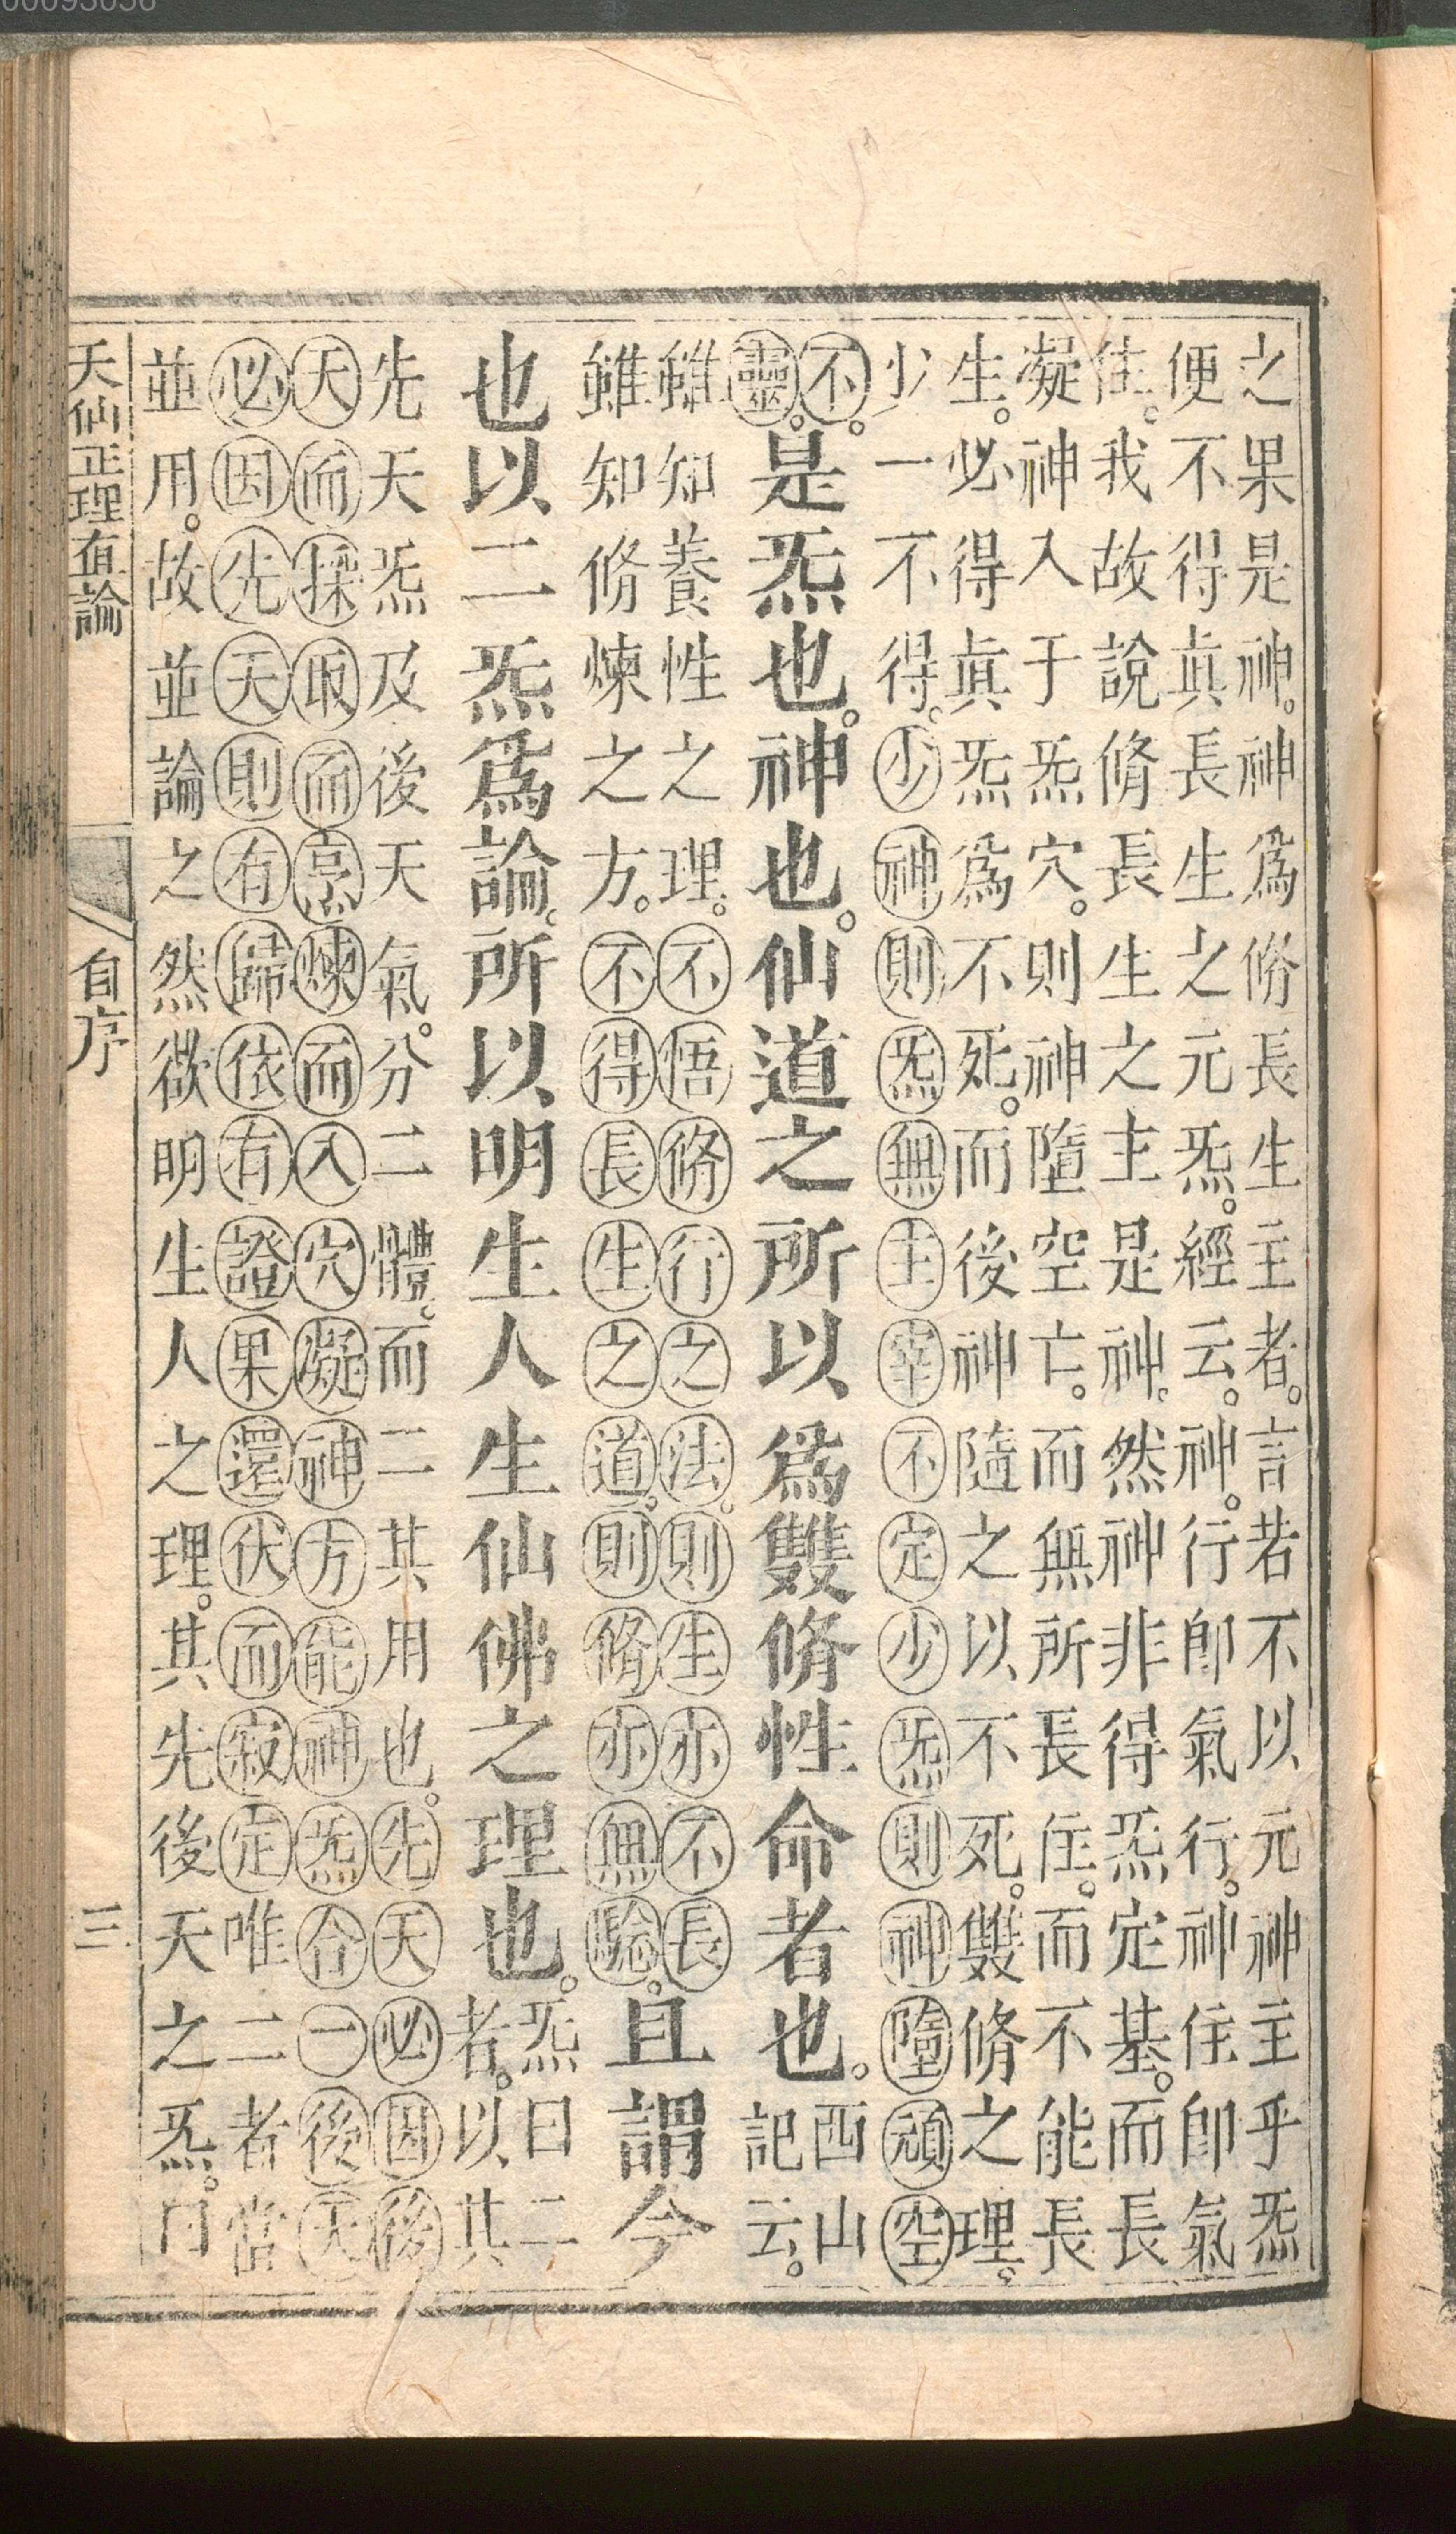 之果是神。神爲脩長生主者。言若不以元神主乎炁
便不得真長生之元炁。經云。神。行卽氣行。神住卽氣
住。我故說脩長生之主是神。然神非得炁定基。而長
凝神入于炁穴。則神墮空亡。而無所長住。而不能長
生。必得真炁爲不死。而後神隨之以不死。雙脩之理。
少一不得。少神則炁無主宰不定少炁則神墮頑空
不。
靈。
是炁也。神也。仙道之所以爲雙脩性命者也。
西山
記云。
雖知養性之理。不悟脩行之法。則生亦不長
雖知脩煉之方。不得長生之道。則脩亦無驗。
且謂今
也以二炁爲論。所以明生人生仙佛之理也。
炁曰二
者。以其
先天炁及後天氣。分二體。而二其用也。先天必因後
天而採取而烹煉而入穴凝神方能神炁合一後天
必因先天則有歸依有證果還伏而寂定唯二者當
並用。故並論之然欲明生人之理。其先後天之炁。
天仙正理直論
自序
三